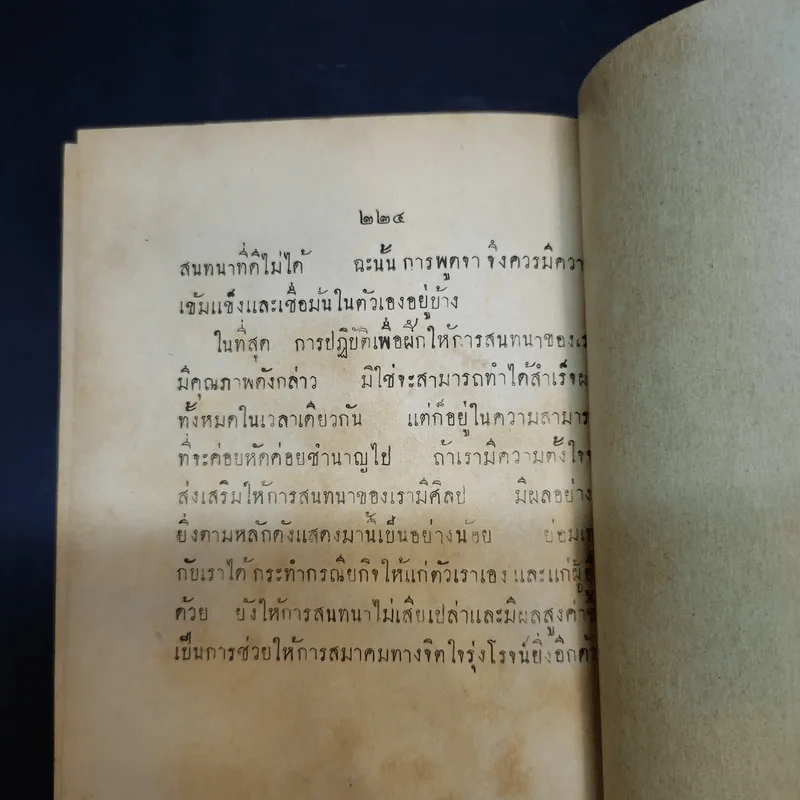 ๒๒๔
สนทนาที่ดีไม่ได้ ฉะนั้น การพูดจา จึงควรมีควา
เข้มแข็งและเชื่อมั่นในตัวเองอยู่บ้าง
ในที่สุด การปฏิบัติเพื่อฝึกให้การสนทนาของเร
มีคุณภาพดังกล่าว มิใช่จะสามารถทำได้สำเร็จผ
ทั้งหมดในเวลาเดียวกัน แต่ก็อยู่ในความสามาร
ที่จะค่อยหัดค่อยชำนาญไป ถ้าเรามีความตั้งใจ
ส่งเสริมให้การสนทนาของเรามีศิลป มีผลอย่าง
ยิ่งตามหลักดังแสดงมานี้เป็นอย่างน้อย ย่อมเท
กับเราได้กระทำกรณียกิจให้แก่ตัวเราเอง และแก่ผู้อื่
ด้วย ยังให้การสนทนาไม่เสียเปล่าและมีผลสูงค่าขึ้
เป็นการช่วยให้การสมาคมทางจิตใจรุ่งโรจน์ยิ่งอีกด้ว